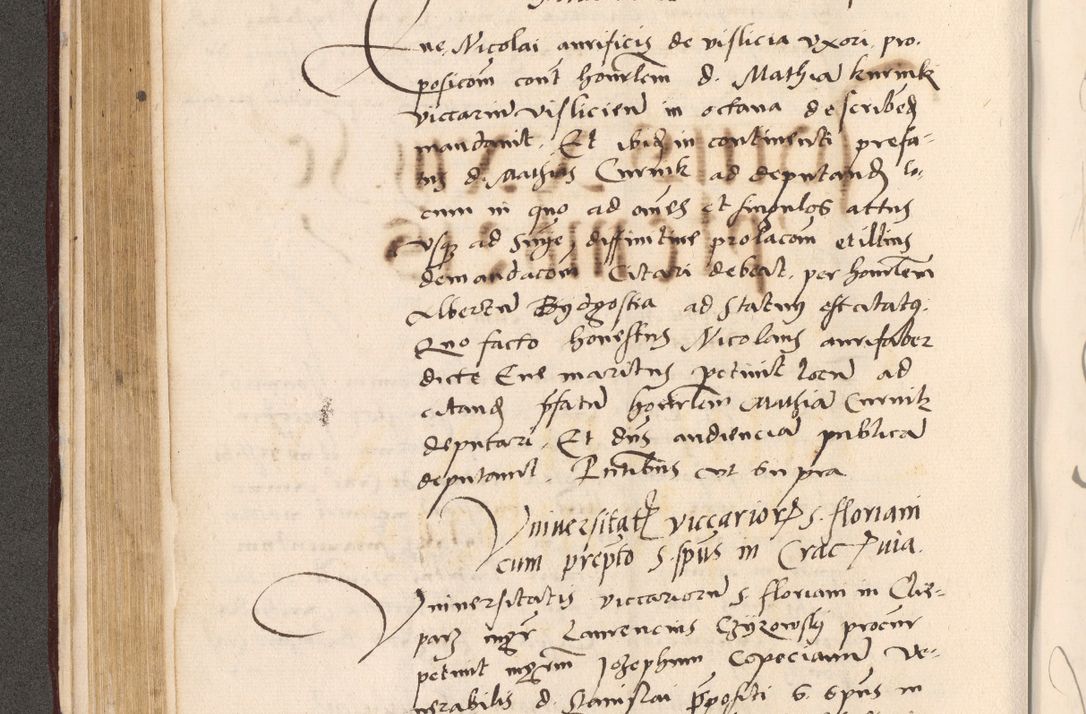 Ene Nicolai aurificis de vislicia vxori pro-
posicom cont honrlem d. Mathia kurnik
viccariu vislicien in octava described
mandavit. Et ibid in continenti prefa-
tus d. Mathias Curnik ad deputand lo-
cum in quo ad omes et singulos attus
vsq ad finem diffinitive prolacom et illius
demandacom Citari debeat. per honrlem
Albertu Bydgostia ad Statum est citatq.
Quo facto honestus Nicolaus aurifaber
dicte Ene maritus petivit locu ad
citand pfatu honrlem Mathia Curnik
deputari. Et dns audiencia publica
deputavit. Pntibus vt supra
Vniversitat viccarior s. floriani
cum prepto s. spus in Crac
Vniversitatis viccarioru s. floriani in Cle-
parz mgr Laurencius procur
petivit mgrm Josephum ve-
nerabilis d. Stanislai ppositi s. spus in